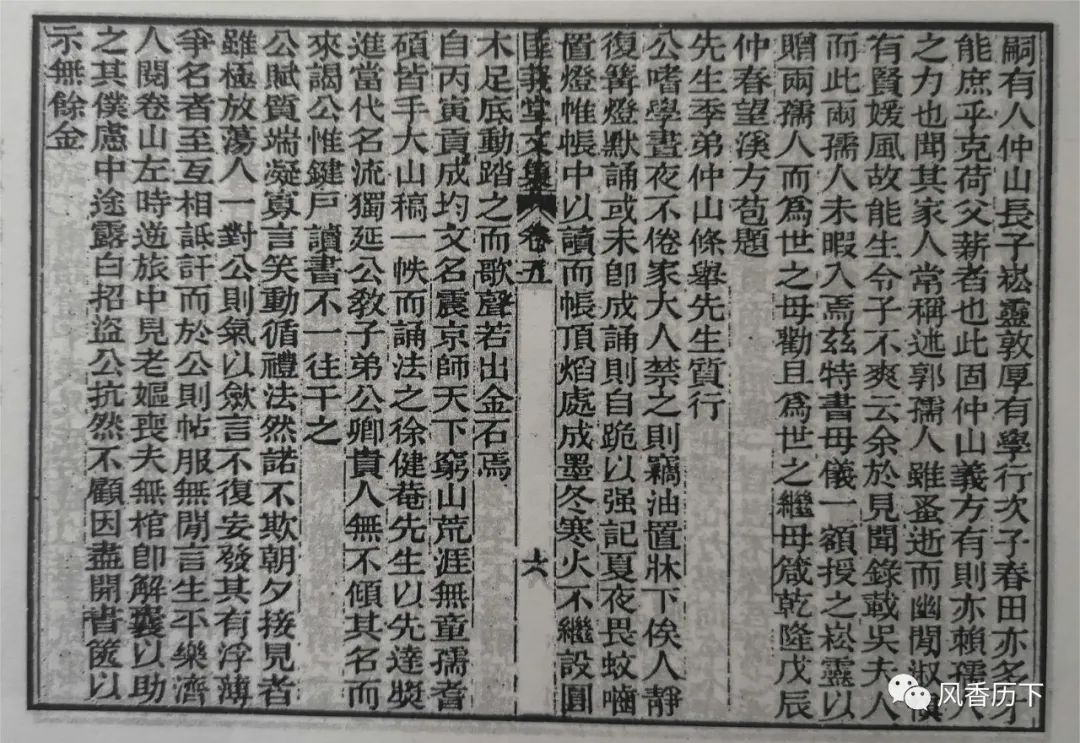 嗣有人仲山長子崧靈敦厚有學行次子春田亦多才
能庶乎克荷父薪者也此固仲山義方有則亦賴孺人
之力也聞其家人常稱述郭孺人雖蚤逝而幽閒淑慎
有賢媛風故能生令子不爽云余於見聞錄載吳夫人
而此兩孺人未暇入焉茲特書母儀一額授之崧靈以
贈兩孺人而爲世之母勸且爲世之繼母箴乾隆戊辰
仲春望溪方苞題
先生季弟仲山條舉先生質行
公嗜學晝夜不倦家大人禁之則竊油置牀下俟人靜
復篝燈默誦或未卽成誦則自跪以强記夏夜畏蚊嚙
置燈帷帳中以讀而帳頂熖處成墨冬寒火不繼設圓
匡義堂文集 卷五 六
木足底動踏之而歌聲若出金石焉
自丙寅貢成均文名震京師天下窮山荒涯無童孺耆
碩皆手大山稿一帙而誦法之徐健菴先生以先達奬
進當代名流獨延公敎子弟公卿貴人無不傾其名而
來謁公惟鍵戸讀書不一往干之
公賦質端凝寡言笑動循禮法然諾不欺朝夕接見者
雖極放蕩人一對公則氣以斂言不復妄發其有浮薄
爭名者至互相詆訐而於公則帖服無閒言生平樂濟
人閱卷山左時逆旅中見老嫗喪夫無棺卽解囊以助
之其僕慮中途露白招盜公抗然不顧因盡開書篋以
示無餘金
风香历下